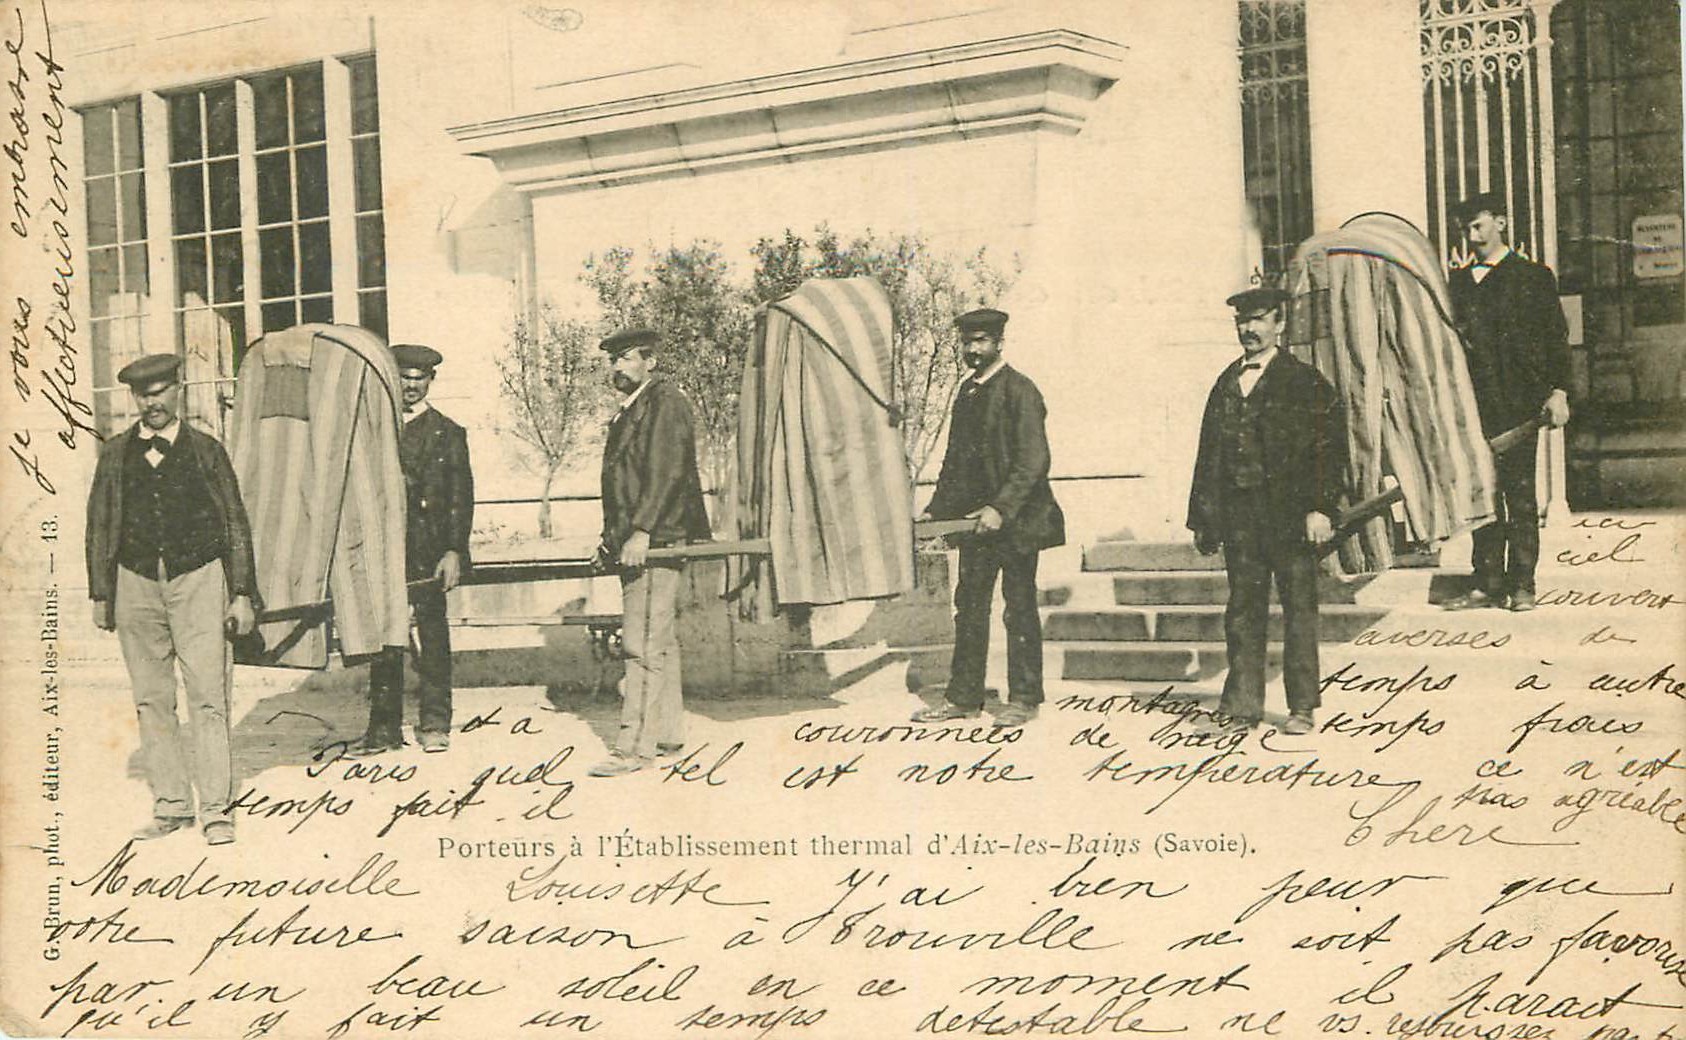 Chere
Mademoiselle Louisette J'ai bien peur que
votre future saison à Trouville ne soit pas favorisé
par un beau soleil en ce moment il parait
qu'il y fait un temps detestable ne vs. rejouissez pas
ici
ciel
couvert
averses de
temps à autre
temps frais
ce n'est
pas agréable
montagnes
couronnées de neige
tel est notre température
et à
Paris quel
temps fait il
Je vous embrasse
affectueusement
Porteurs à l'Établissement thermal d'Aix-les-Bains (Savoie).
G. Brun, phot., éditeur, Aix-les-Bains. — 13.